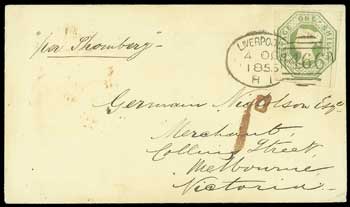 per Thornberg
LIVERPOOL
4 OC
1855
H 1
ONE
466
1/-
Germain Nicholson Esqr
Merchant,
Collins Street,
Melbourne
Victoria